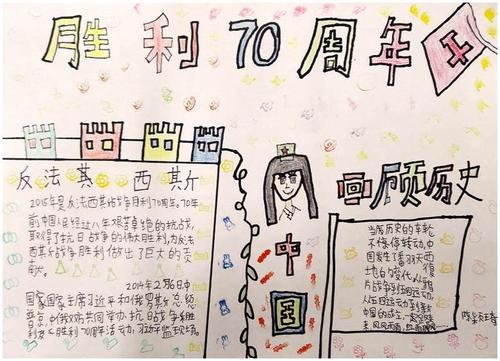 胜利70周年
反法其西斯
2015年是反法西其斯战争月利70周年。70年
前,中国人民经过八年艰苦卓绝的抗战,
取得了抗日战争的伟大胜利,为反法
西其斯战争胜利做出了巨大的贡
献。
2014年2月6日中
国家国家主席习近平和俄罗斯总统
普京,中俄双方共同举办抗战争胜
利反70周年活动,习近平
中国
回顾历史
当历史的车轮
不停停转动,中
国发生了
土地的变化。从
片战争到五四运动,
从五四运动到新
中国的成立,